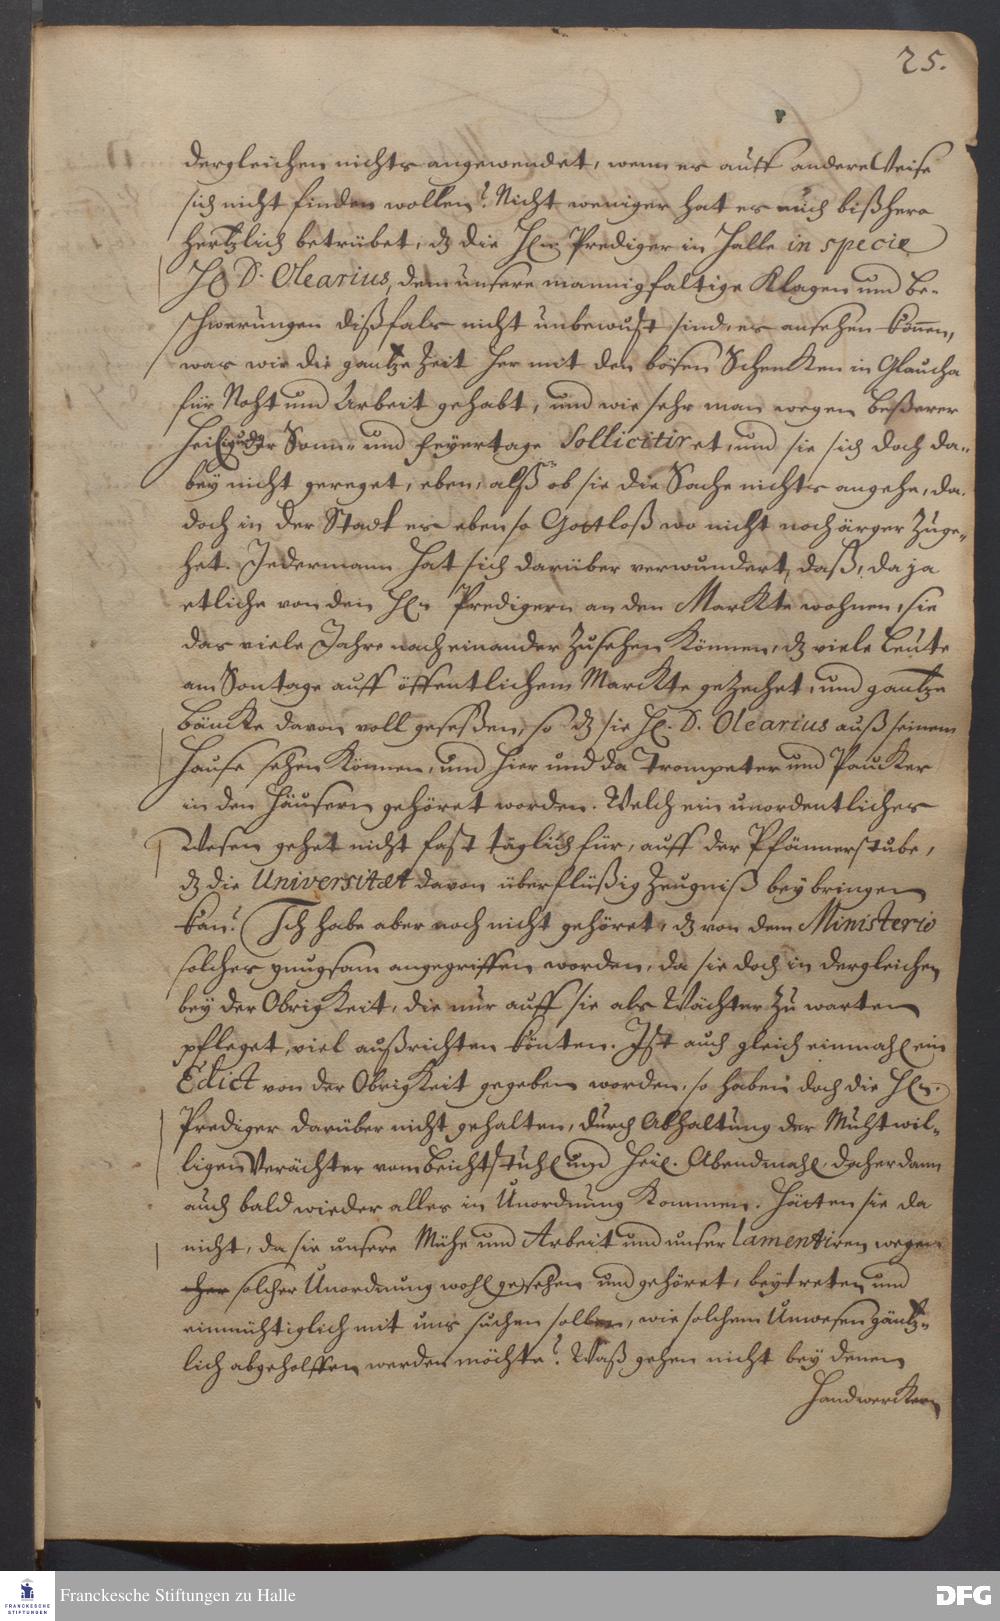 25.
dergleichen nichts angewendet, wenn es auff andere Weise
sich nicht finden wollen? Nicht weniger hat es mich bißhero
hertzlich betrübet, dz die H. Prediger in Halle in specie
H. D. Olearius, dem unsere mannigfaltige Klagen und Be-
schwerungen dißfals nicht unbewust sind, es ansehen können,
was wir die gantze Zeit her mit den bösen Schencken in Glaucha
für Noht und Arbeit gehabt, und wie sehr man wegen beßerer
Heiligung der Sonn- und Feyertage Sollicitiret, und sie sich doch da-
bey nicht gereget, eben, alß ob sie die Sache nichts angehe, da
doch in der Stadt es eben so Gottloß wo nicht noch ärger zuge-
het. Jedermann hat sich darüber verwundert, daß, da ja
etliche von den H. Predigern an den Marckte wohnen, sie
das viele Jahre nach einander zusehen können, dz viele Leute
am Sontage auff öffentlichem Marckte gezechet, und gantze
Bäncke davon voll geseßen, so dz sie H. D. Olearius auß seinem
Hause sehen können, und hier und da Trompeter und Paucker
in den Häusern gehöret worden. Welch ein unordentliches
Wesen gehet nicht fast täglich für, auff der Pfännerstube,
dz die Universitæt davon überflüßig Zeugniß beybringen
kan? Ich habe aber noch nicht gehöret, dz von dem Ministerio
solches gnugsam angegriffen worden, da sie doch in dergleichen
bey der Obrigkeit, die nur auff sie als Wächter zu warten
pfleget, viel außrichten könten. Ist auch gleich einmahl ein
Edict von der Obrigkeit gegeben worden, so haben doch die H.
Prediger darüber nicht gehalten, durch Abhaltung der Muhtwil-
ligen Verächter vom Beichtstuhl und Heil. Abendmahl, daher dann
auch bald wieder alles in Unordnung kommen. Hätten sie da
nicht, da sie unsere Mühe und Arbeit und unser lamentiren wegen
solcher Unordnung wohl gesehen und gehöret, beytreten und
einmühtiglich mit uns suchen sollen, wie solchem Unwesen gäntz-
lich abgeholffen werden möchte? Waß gehen nicht bey denen
Handwerckern
Franckesche Stiftungen zu Halle
FRANCKESCHE
STIFTUNGEN
DFG